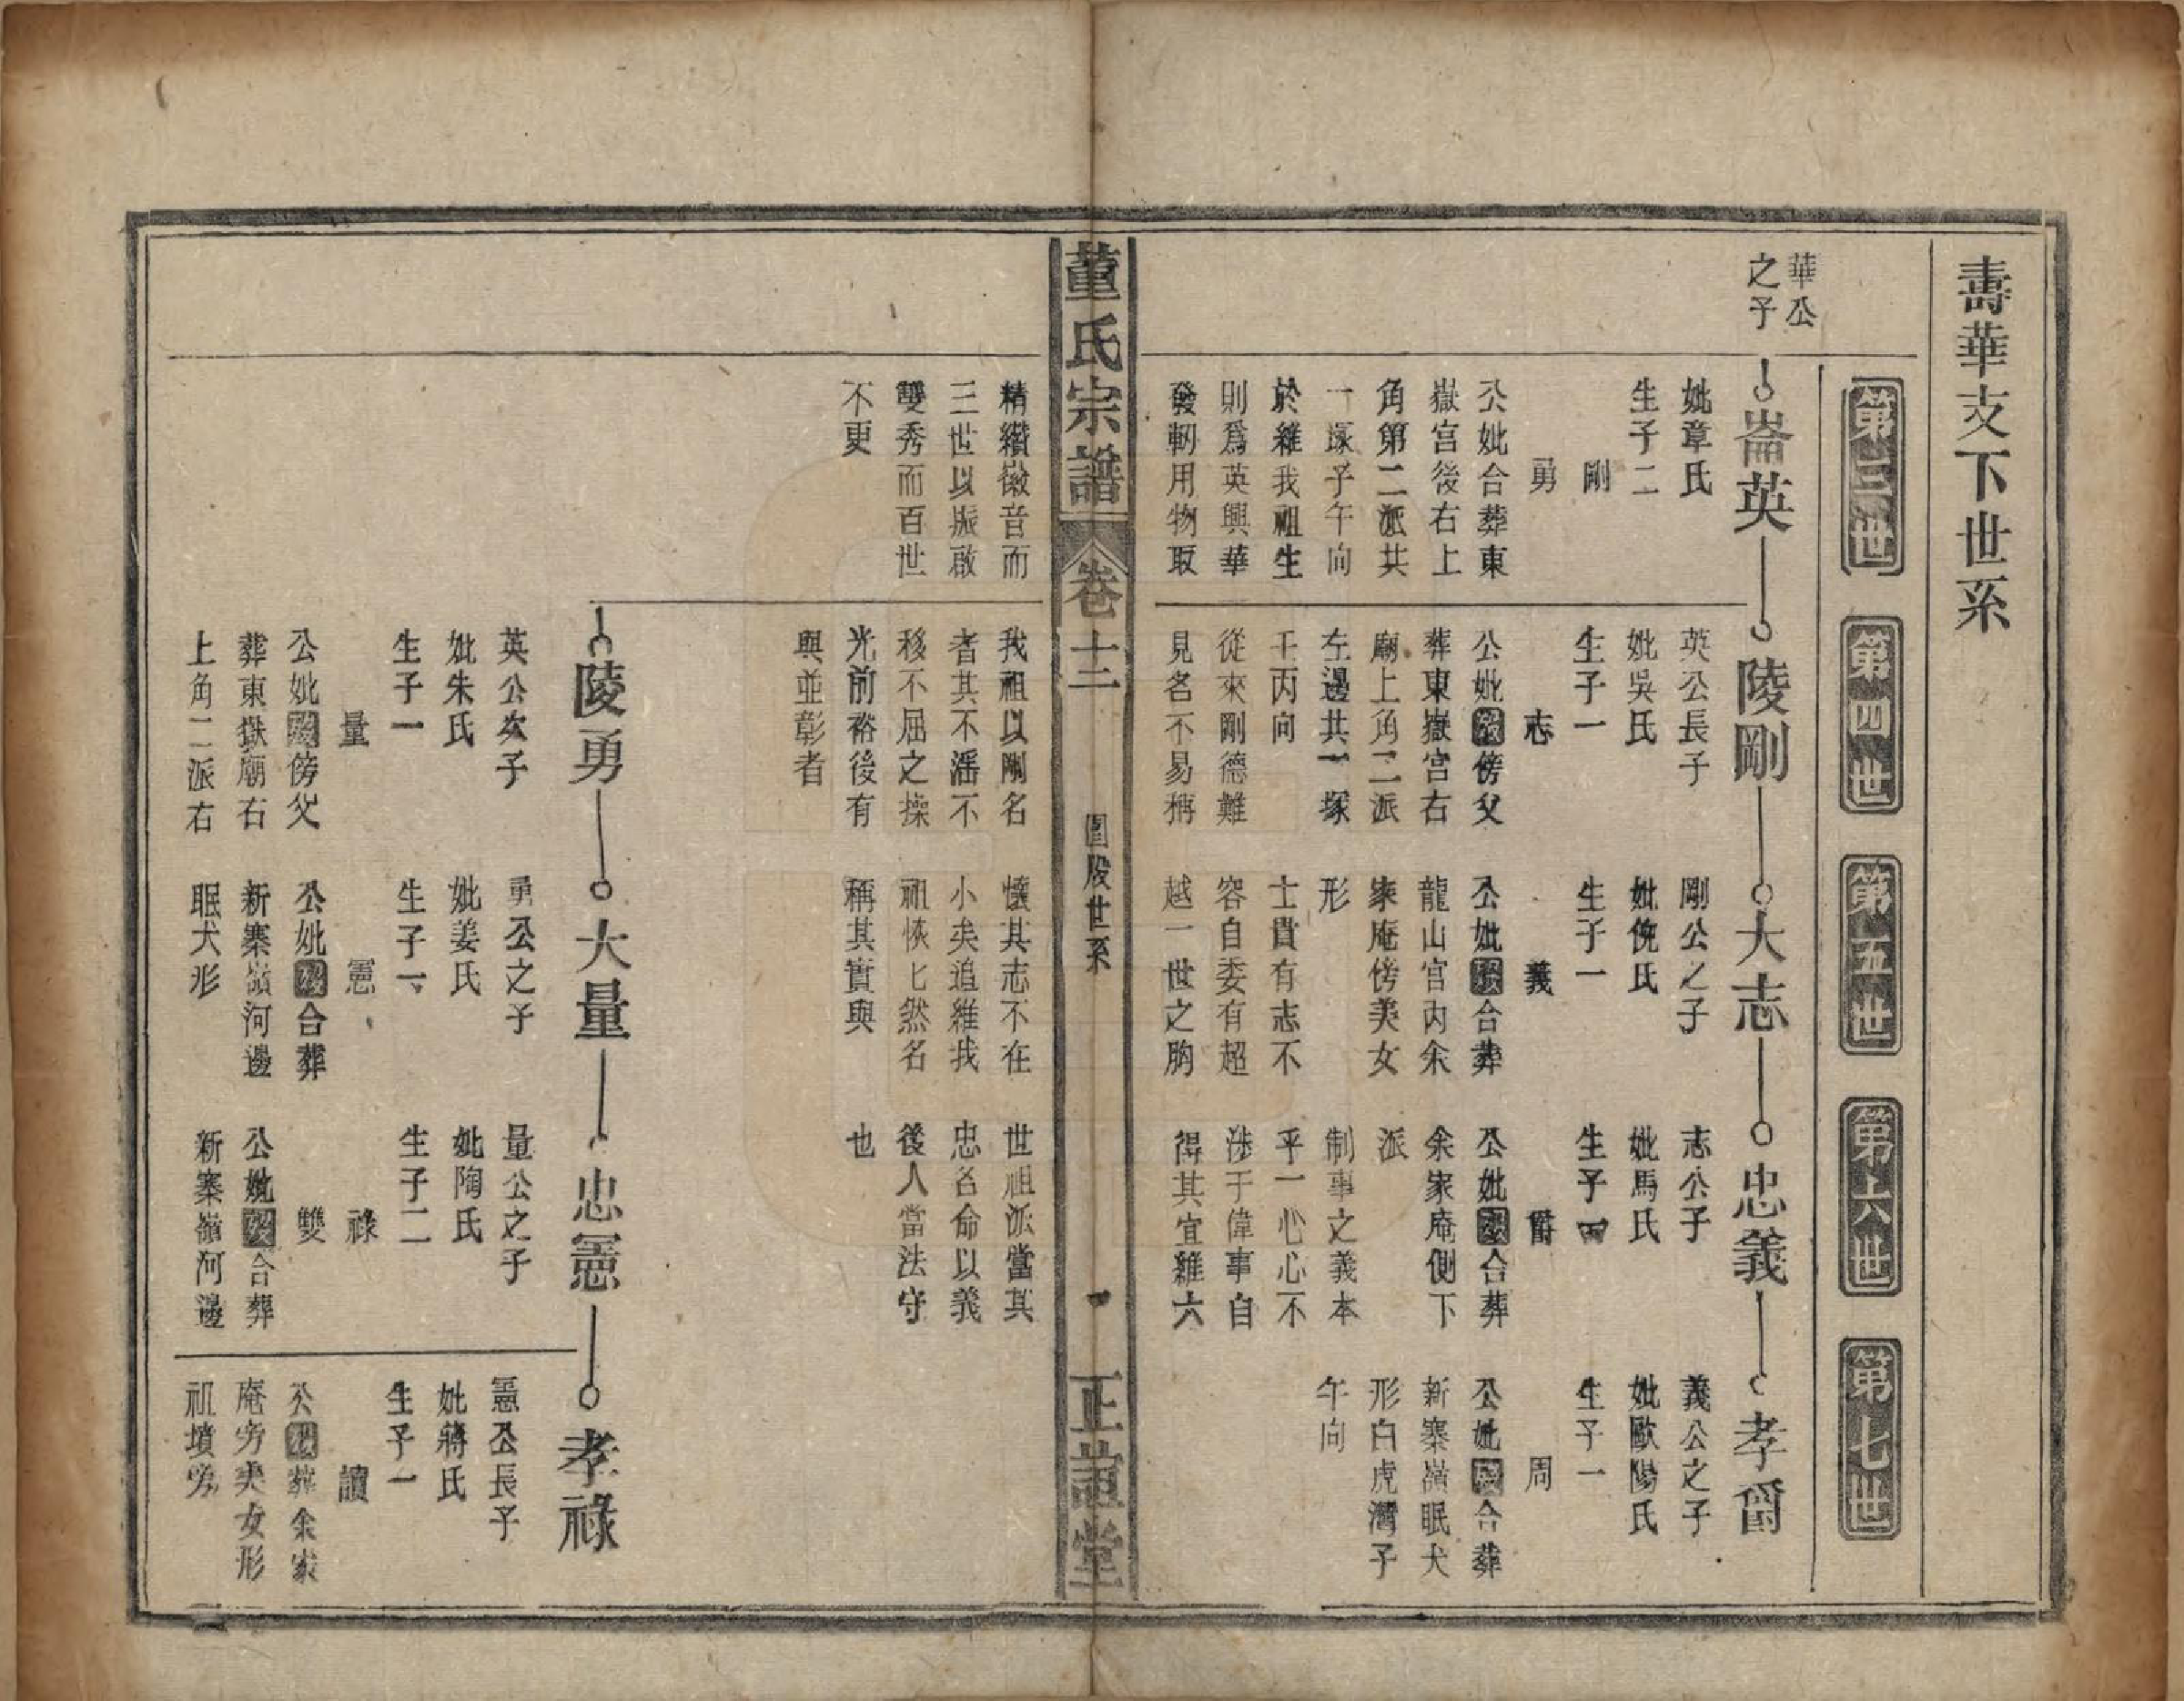 壽華支下世系
第三世
第四世
第五世
第六世
第七世
華公
之子
崙英
妣章氏
生子二
剛
勇
公妣合葬東
嶽宮後右上
角第二派共
一塚子午向
於維我祖生
則爲英興華
發軔用物取
精纘徽音而
三世以振啟
雙秀而百世
不更
陵剛
英公長子
妣吳氏
生子一
志
公妣歿傍父
葬東嶽宮右
廟上角二派
左邊共一塚
壬丙向
從來剛德難
見名不易稱
我祖以剛名
者其不滛不
移不屈之操
光前裕後有
與並彰者
大志
剛公之子
妣倪氏
生子一
義
公妣歿合葬
龍山宮內余
家庵傍美女
形
士貴有志不
容自委有超
越一世之胸
懷其志不在
小矣追維我
祖恢七然名
稱其實與
忠義
志公子
妣馬氏
生子四
爵
公妣歿合葬
余家庵側下
派
制事之義本
乎一心心不
涉于偉事自
得其宜維六
世祖派當其
忠名命以義
後人當法守
也
孝爵
義公之子
妣歐陽氏
生子一
周
公妣歿合葬
新寨嶺眠犬
形白虎灣子
午向
董氏宗譜
卷十二
圍股世系
一
正誼堂
陵勇
英公次子
妣朱氏
生子一
量
公妣歿傍父
葬東嶽廟右
上角二派右
大量
勇公之子
妣姜氏
生子一
憲
公妣歿合葬
新寨嶺河邊
眠犬形
忠憲
量公之子
妣陶氏
生子二
祿
雙
公妣歿合葬
新寨嶺河邊
孝祿
憲公長子
妣蔣氏
生子一
讀
公歿葬余家
庵旁美女形
祖墳旁